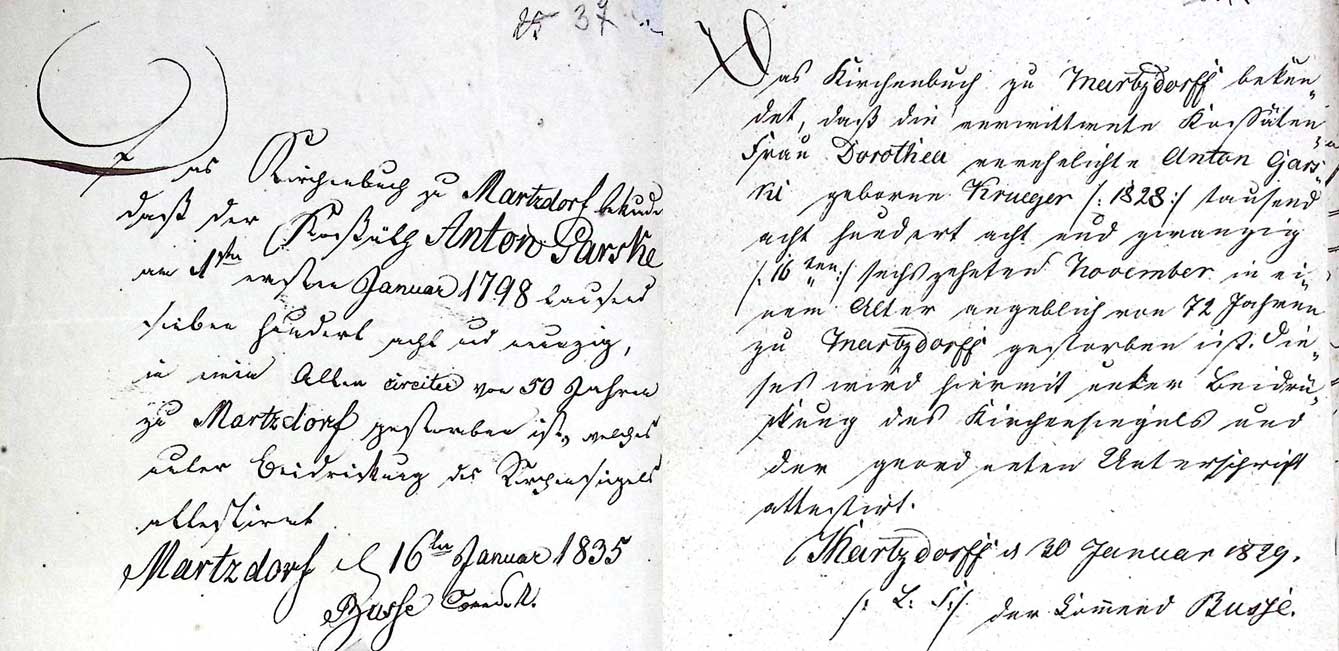 37
Das Kirchenbuch zu Martzdorf bekundet
daß der Kossäth Anton Garske
am 1ten ersten Januar 1798 tausend
sieben hundert acht und neunzig,
in einem Alter circiter von 50 Jahren
zu Martzdorf gestorben ist, welches
unter Beidrückung des Kirchensiegels
attestiret
Martzdorf d 16ten Januar 1835
Busse Commend.
Das Kirchenbuch zu Martzdorff bekun-
det, daß die verwittwete Kossäten
Frau Dorothea verehelichte Anton Gars-
ki geborne Krueger /: 1828 :/ tausend
acht hundert acht und zwanzig
/: 16ten :/ sechszehnten November in ei-
nem Alter angeblich von 72 Jahren
zu Martzdorff gestorben ist. Die-
ses wird hiermit unter Beidrü-
ckung des Kirchensiegels und
der geordneten Unterschrift
attestirt.
Martzdorff d 30 Januar 1829.
/: L. S. :/ der Commend Busse.